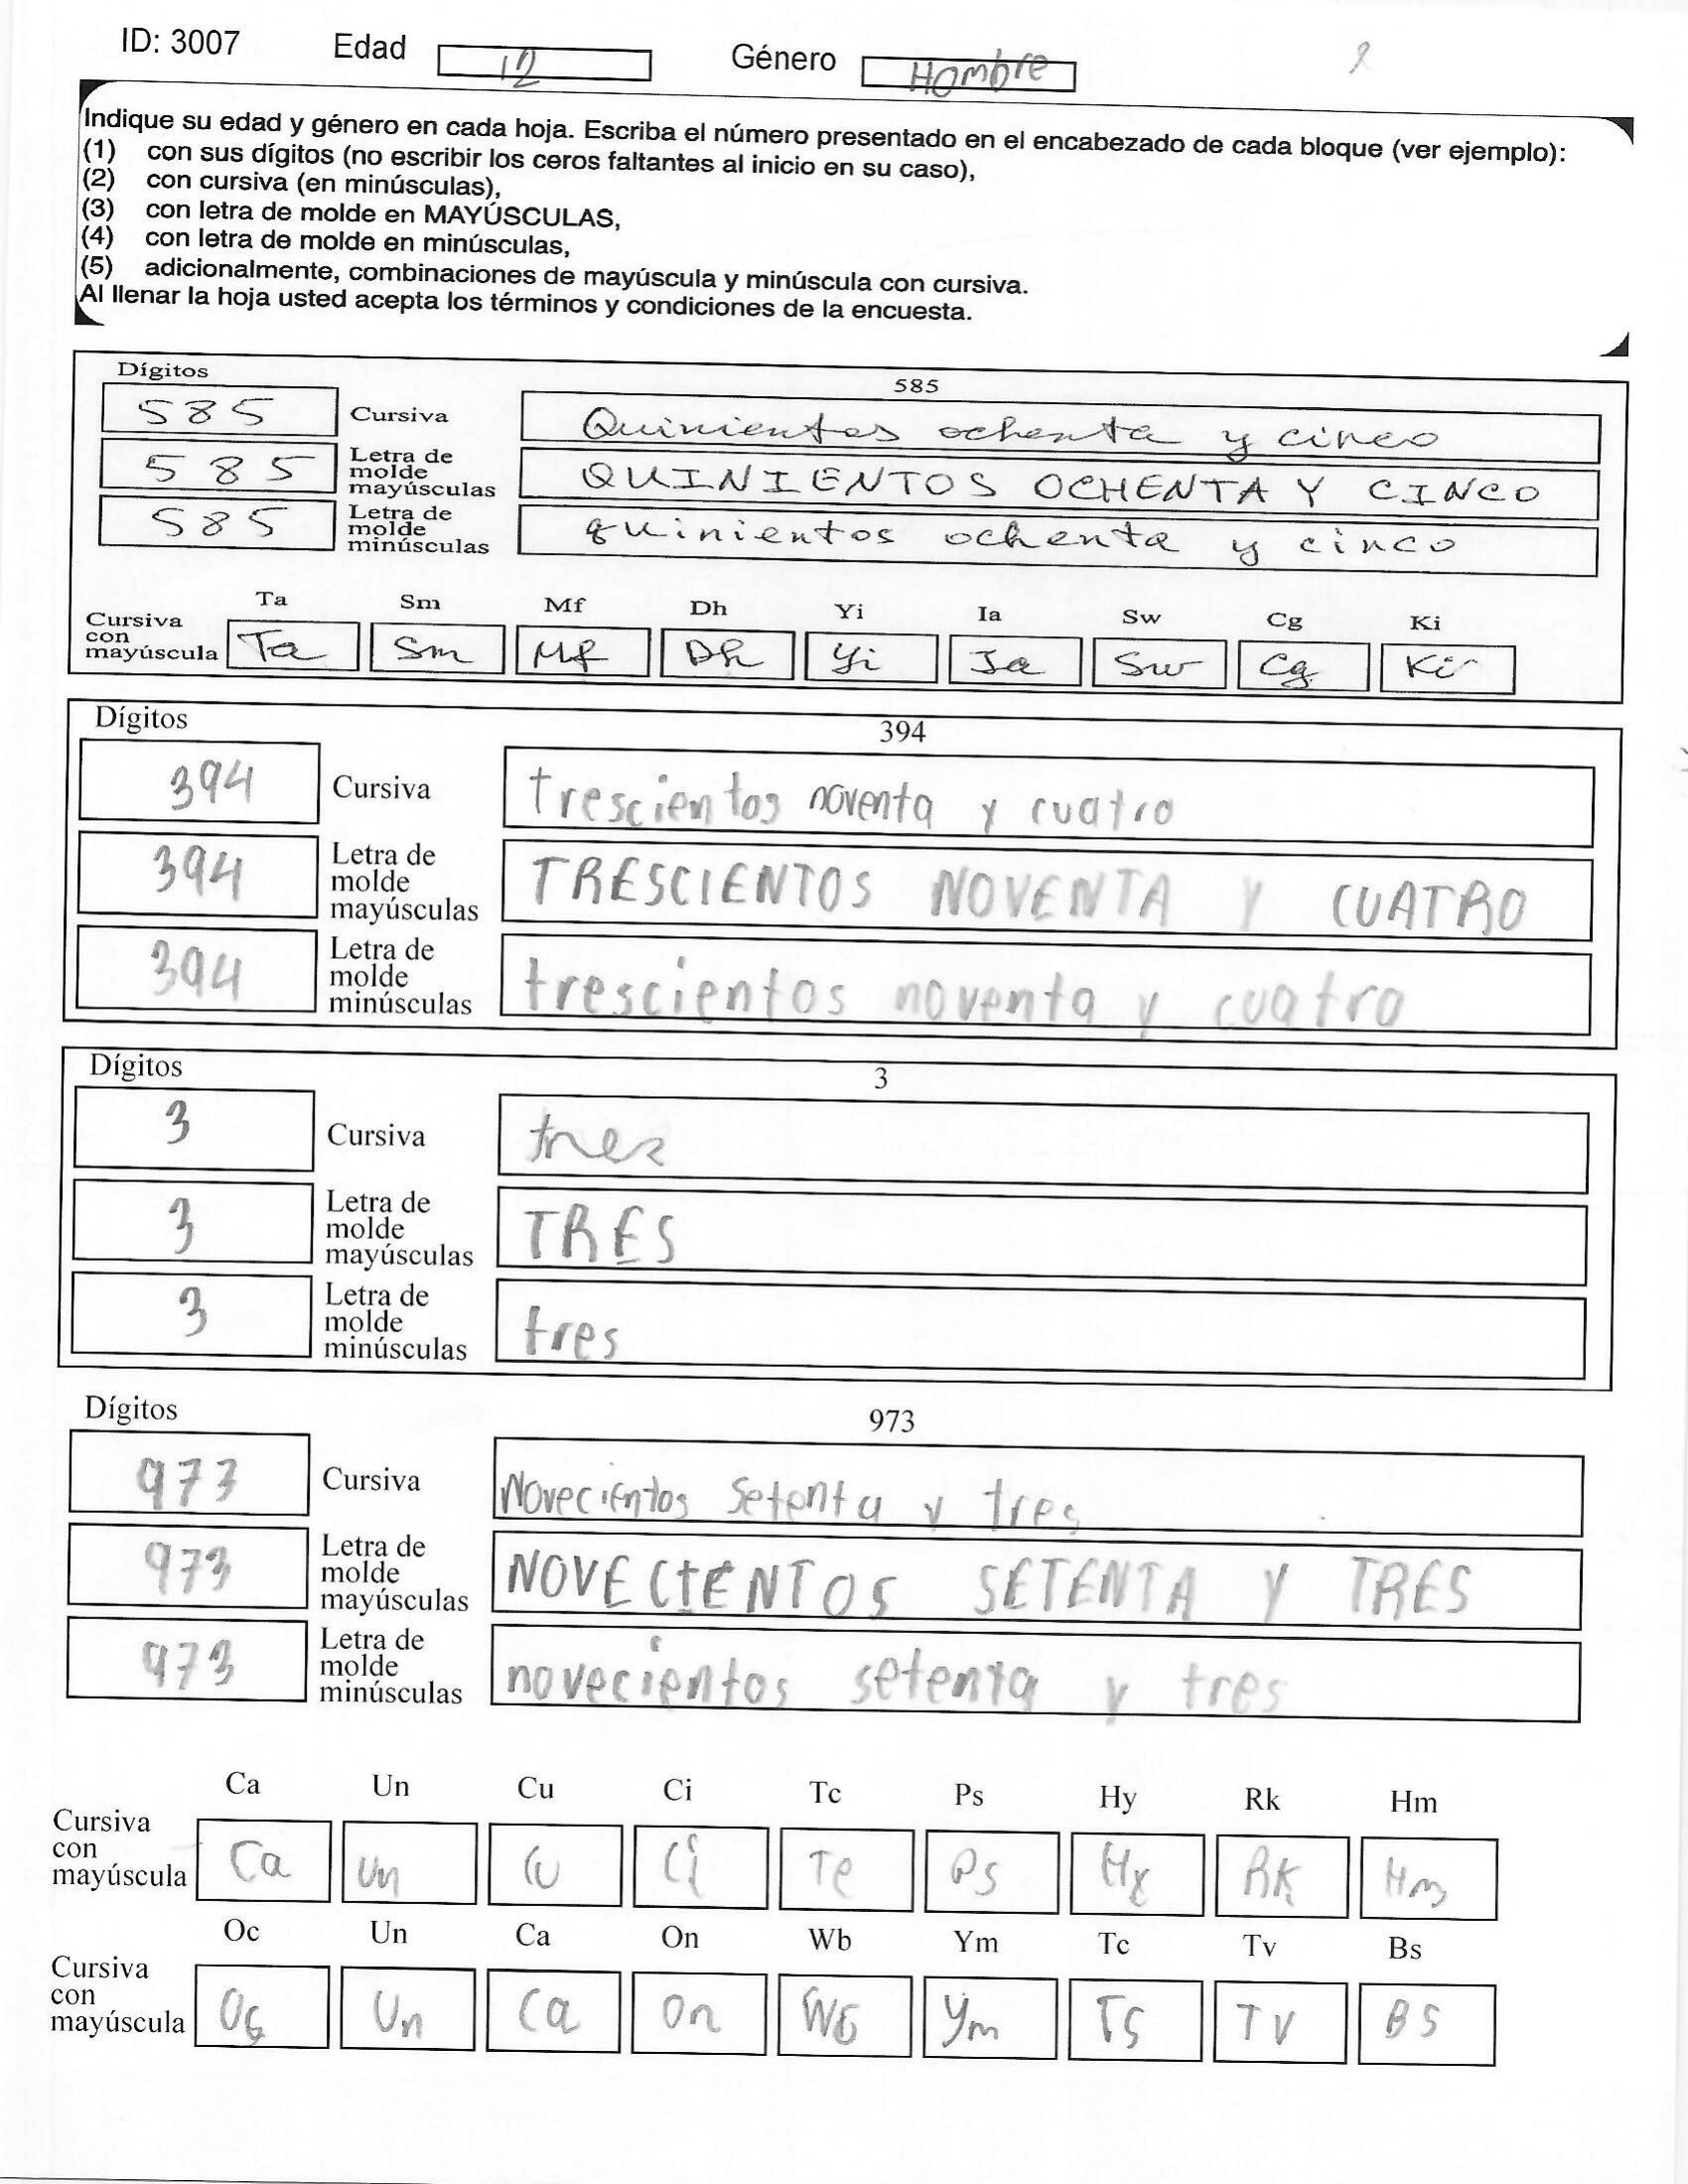 ID: 3007 Edad 12 Género Hombre
Indique su edad y género en cada hoja. Escriba el número presentado en el encabezado de cada bloque (ver ejemplo):
(1) con sus dígitos (no escribir los ceros faltantes al inicio en su caso),
(2) con cursiva (en minúsculas),
(3) con letra de molde en MAYÚSCULAS,
(4) con letra de molde en minúsculas,
(5) adicionalmente, combinaciones de mayúscula y minúscula con cursiva.
Al llenar la hoja usted acepta los términos y condiciones de la encuesta.
Dígitos 585
585 Cursiva Quinientos ochenta y cinco
585 Letra de molde mayúsculas QUINIENTOS OCHENTA Y CINCO
585 Letra de molde minúsculas quinientos ochenta y cinco
Ta Sm Mf Dh Yi Ia Sw Cg Ki
Cursiva con mayúscula Ta Sm Mf Dh Yi Ia Sw Cg Ki
Dígitos 394
394 Cursiva trescientos noventa y cuatro
394 Letra de molde mayúsculas TRESCIENTOS NOVENTA Y CUATRO
394 Letra de molde minúsculas trescientos noventa y cuatro
Dígitos 3
3 Cursiva tres
3 Letra de molde mayúsculas TRES
3 Letra de molde minúsculas tres
Dígitos 973
973 Cursiva Novecientos setenta y tres
973 Letra de molde mayúsculas NOVECIENTOS SETENTA Y TRES
973 Letra de molde minúsculas novecientos setenta y tres
Ca Un Cu Ci Tc Ps Hy Rk Hm
Cursiva con mayúscula Ca Un Cu Ci Te Ps Hy RK Hm
Oc Un Ca On Wb Ym Tc Tv Bs
Cursiva con mayúscula Un Ca On Ym TV BS